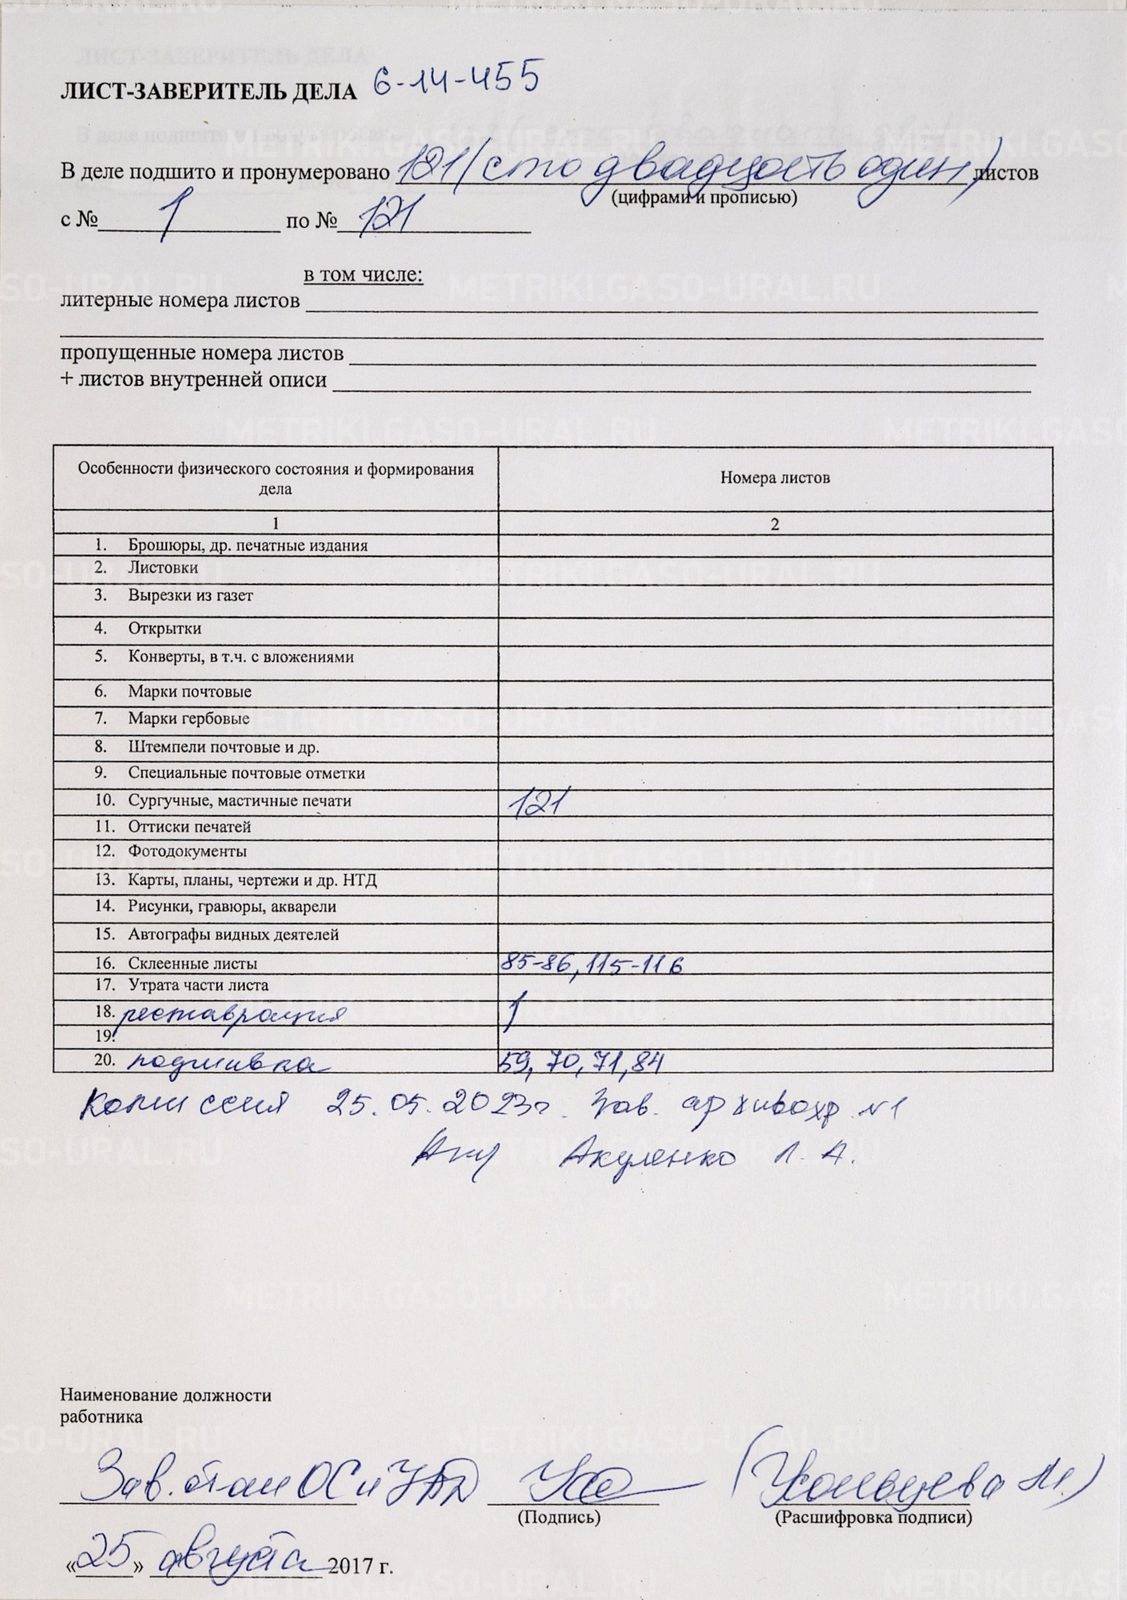 ЛИСТ-ЗАВЕРИТЕЛЬ ДЕЛА 6-14-455
В деле подшито и пронумеровано 121 (сто двадцать один) листов
(цифрами и прописью)
с № 1 по № 121
в том числе:
литерные номера листов
пропущенные номера листов
+ листов внутренней описи
Особенности физического состояния и формирования дела Номера листов
1 2
1. Брошюры, др. печатные издания
2. Листовки
3. Вырезки из газет
4. Открытки
5. Конверты, в т.ч. с вложениями
6. Марки почтовые
7. Марки гербовые
8. Штемпели почтовые и др.
9. Специальные почтовые отметки
10. Сургучные, мастичные печати 121
11. Оттиски печатей
12. Фотодокументы
13. Карты, планы, чертежи и др. НТД
14. Рисунки, гравюры, акварели
15. Автографы видных деятелей
16. Склеенные листы 85-86, 115-116
17. Утрата части листа
18. реставрация 1
19.
20. подшивка 59, 70, 71, 84
25.05.2023г. Зав. архивохр. №1
Акуленко Л. А.
Наименование должности
работника
Зав. ОС и УАД
(Подпись) (Расшифровка подписи)
«25» августа 2017 г.
METRIKI.GASO-URAL.RU